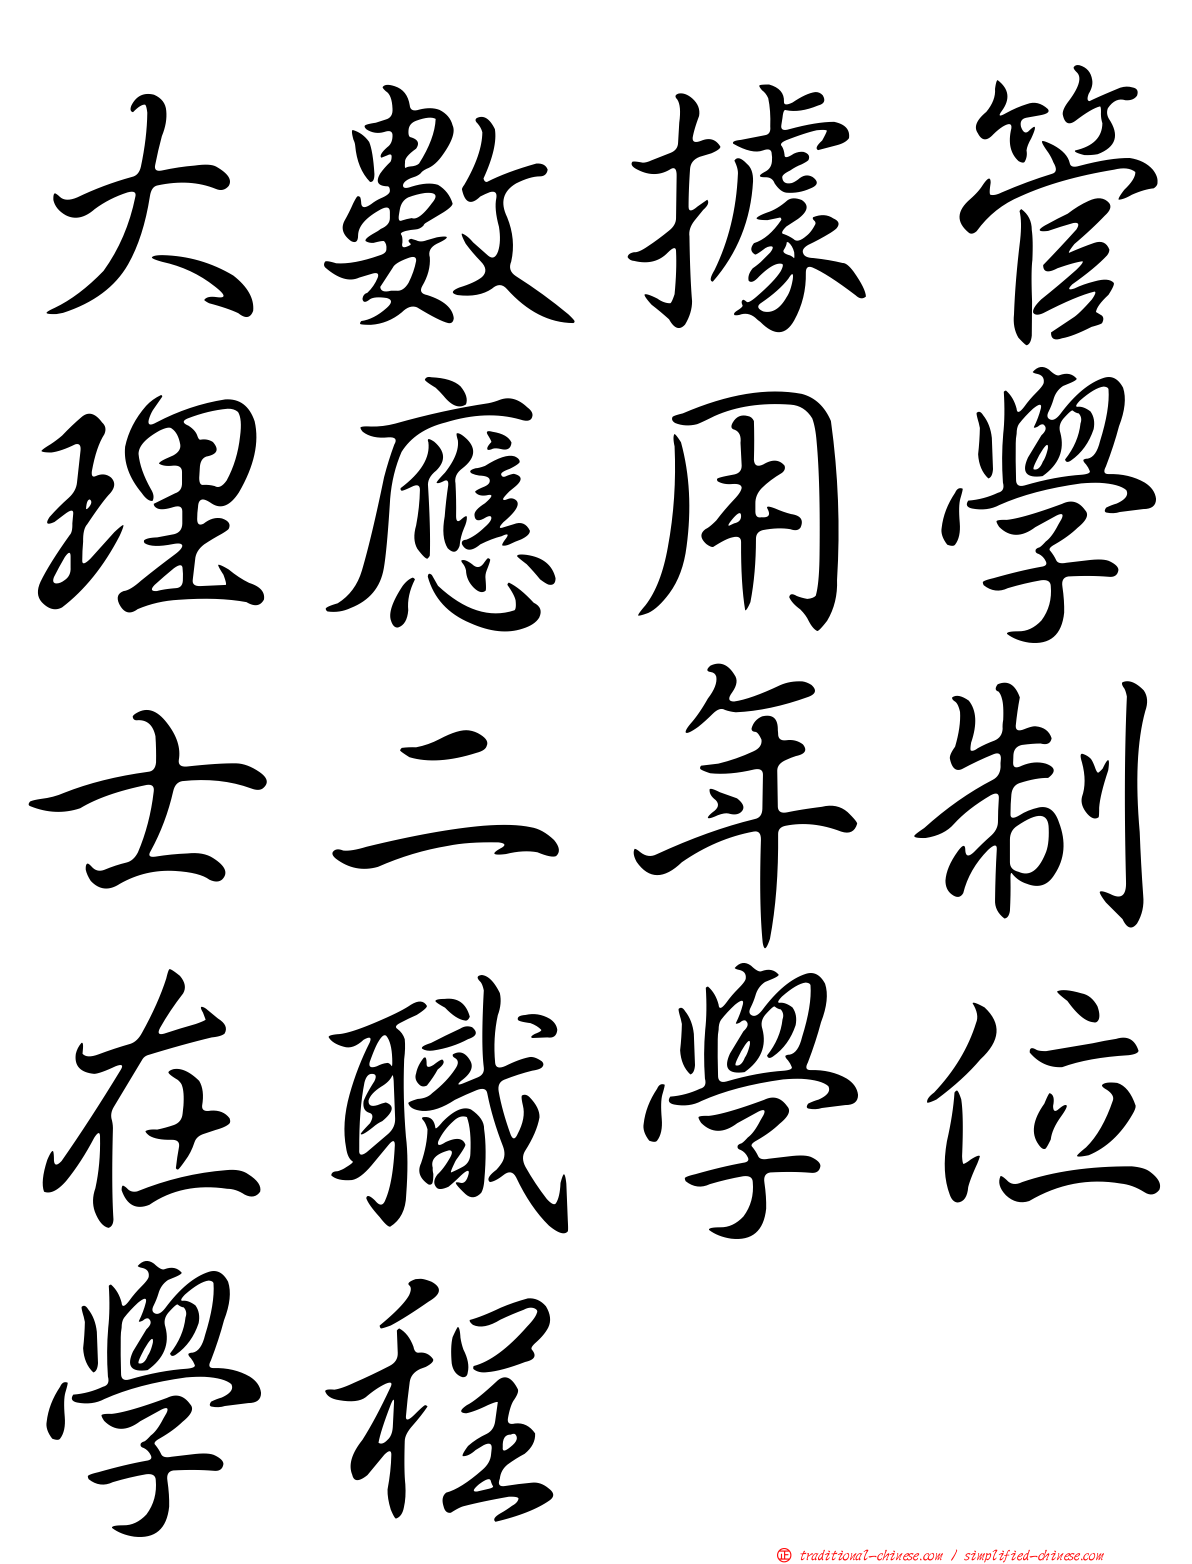 大數據管
理應用學
士二年制
在職學位
學程
正 traditional-chinese.com / simplified-chinese.com